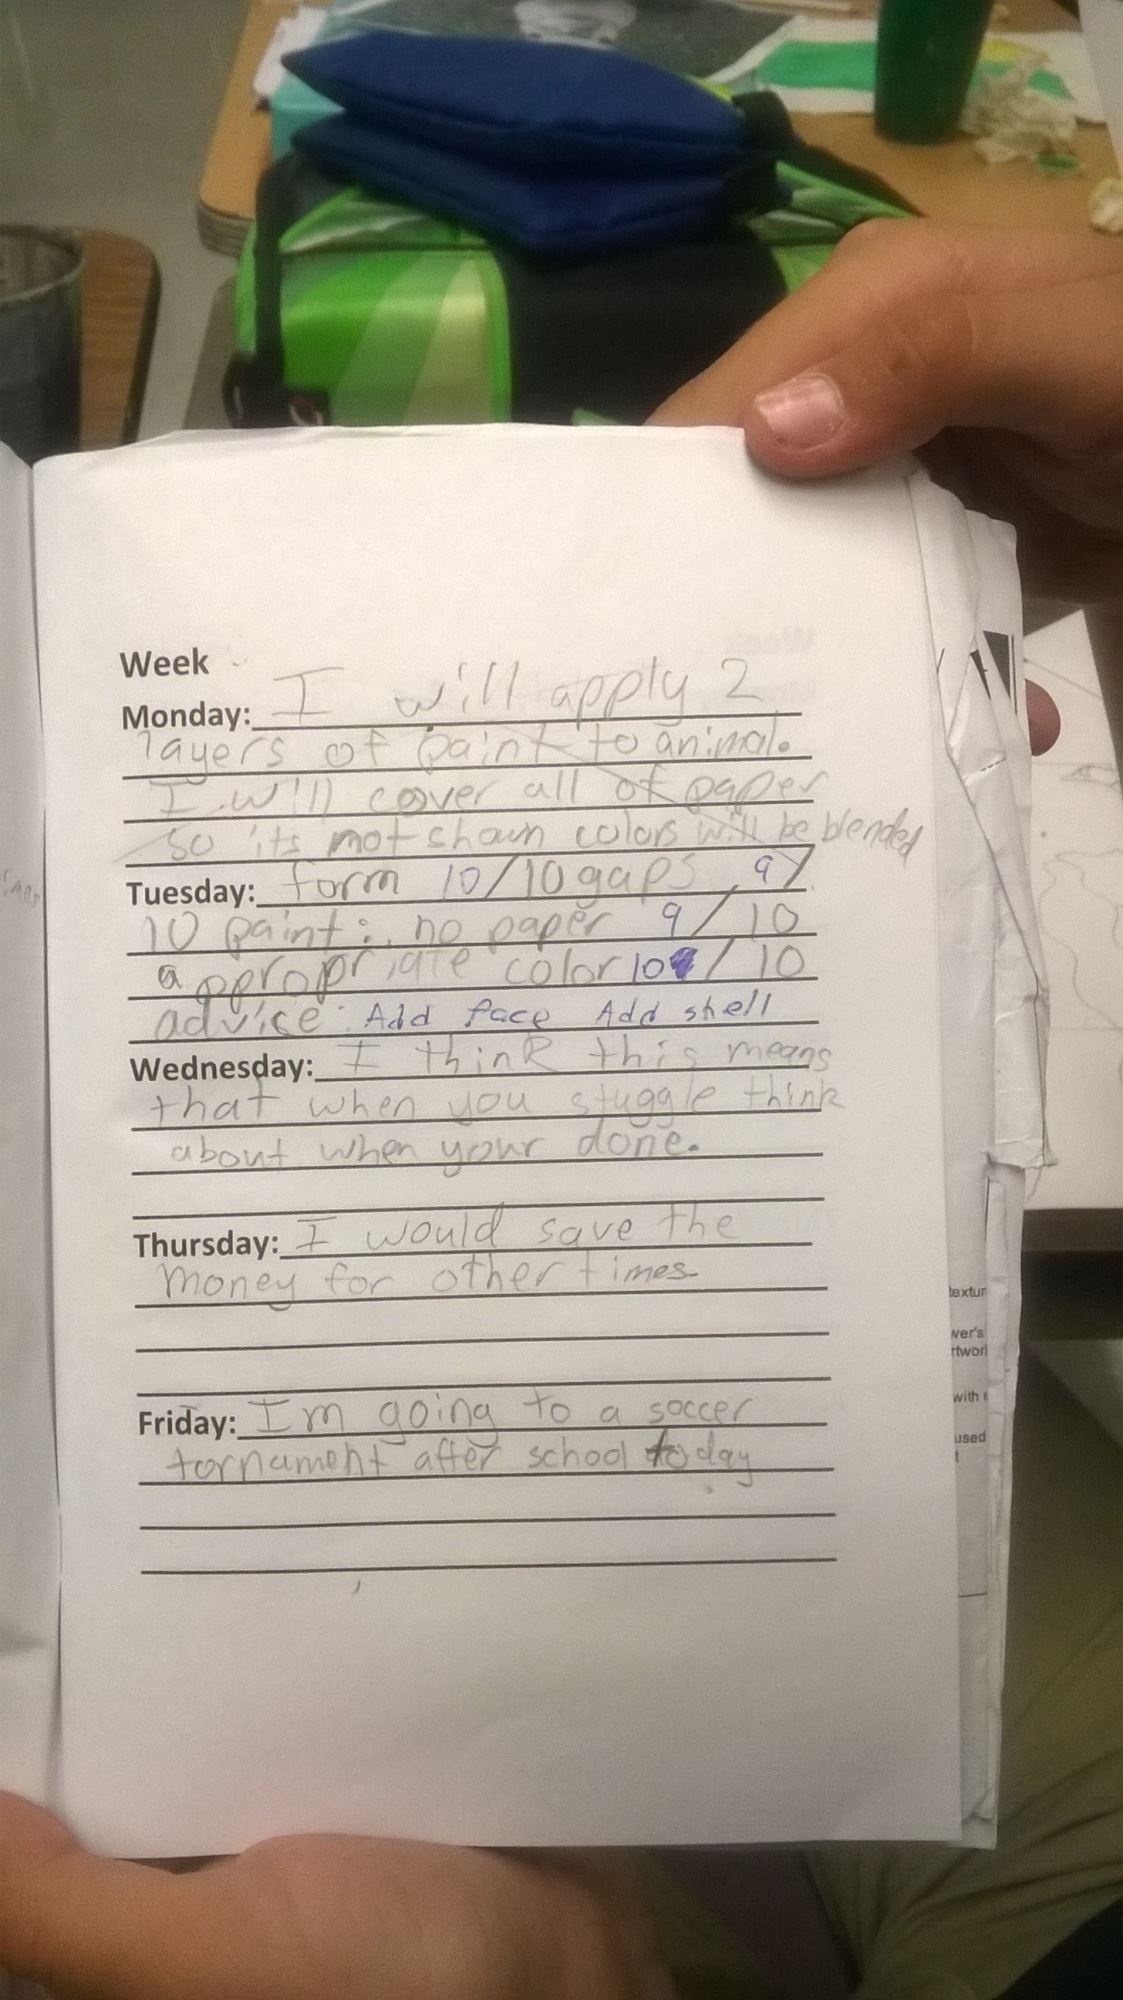 Week
Monday: I will apply 2
layers of paint to animal.
I will cover all of paper
so its not shown colors will be blended
Tuesday: form 10/10 gaps 9/
10 paint: no paper 9/10
appropriate color 10/10
advise: Add face Add shell
Wednesday: I think this means
that when you stuggle think
about when your done.
Thursday: I would save the
money for other times
Friday: Im going to a soccer
tornament after school today
with
used